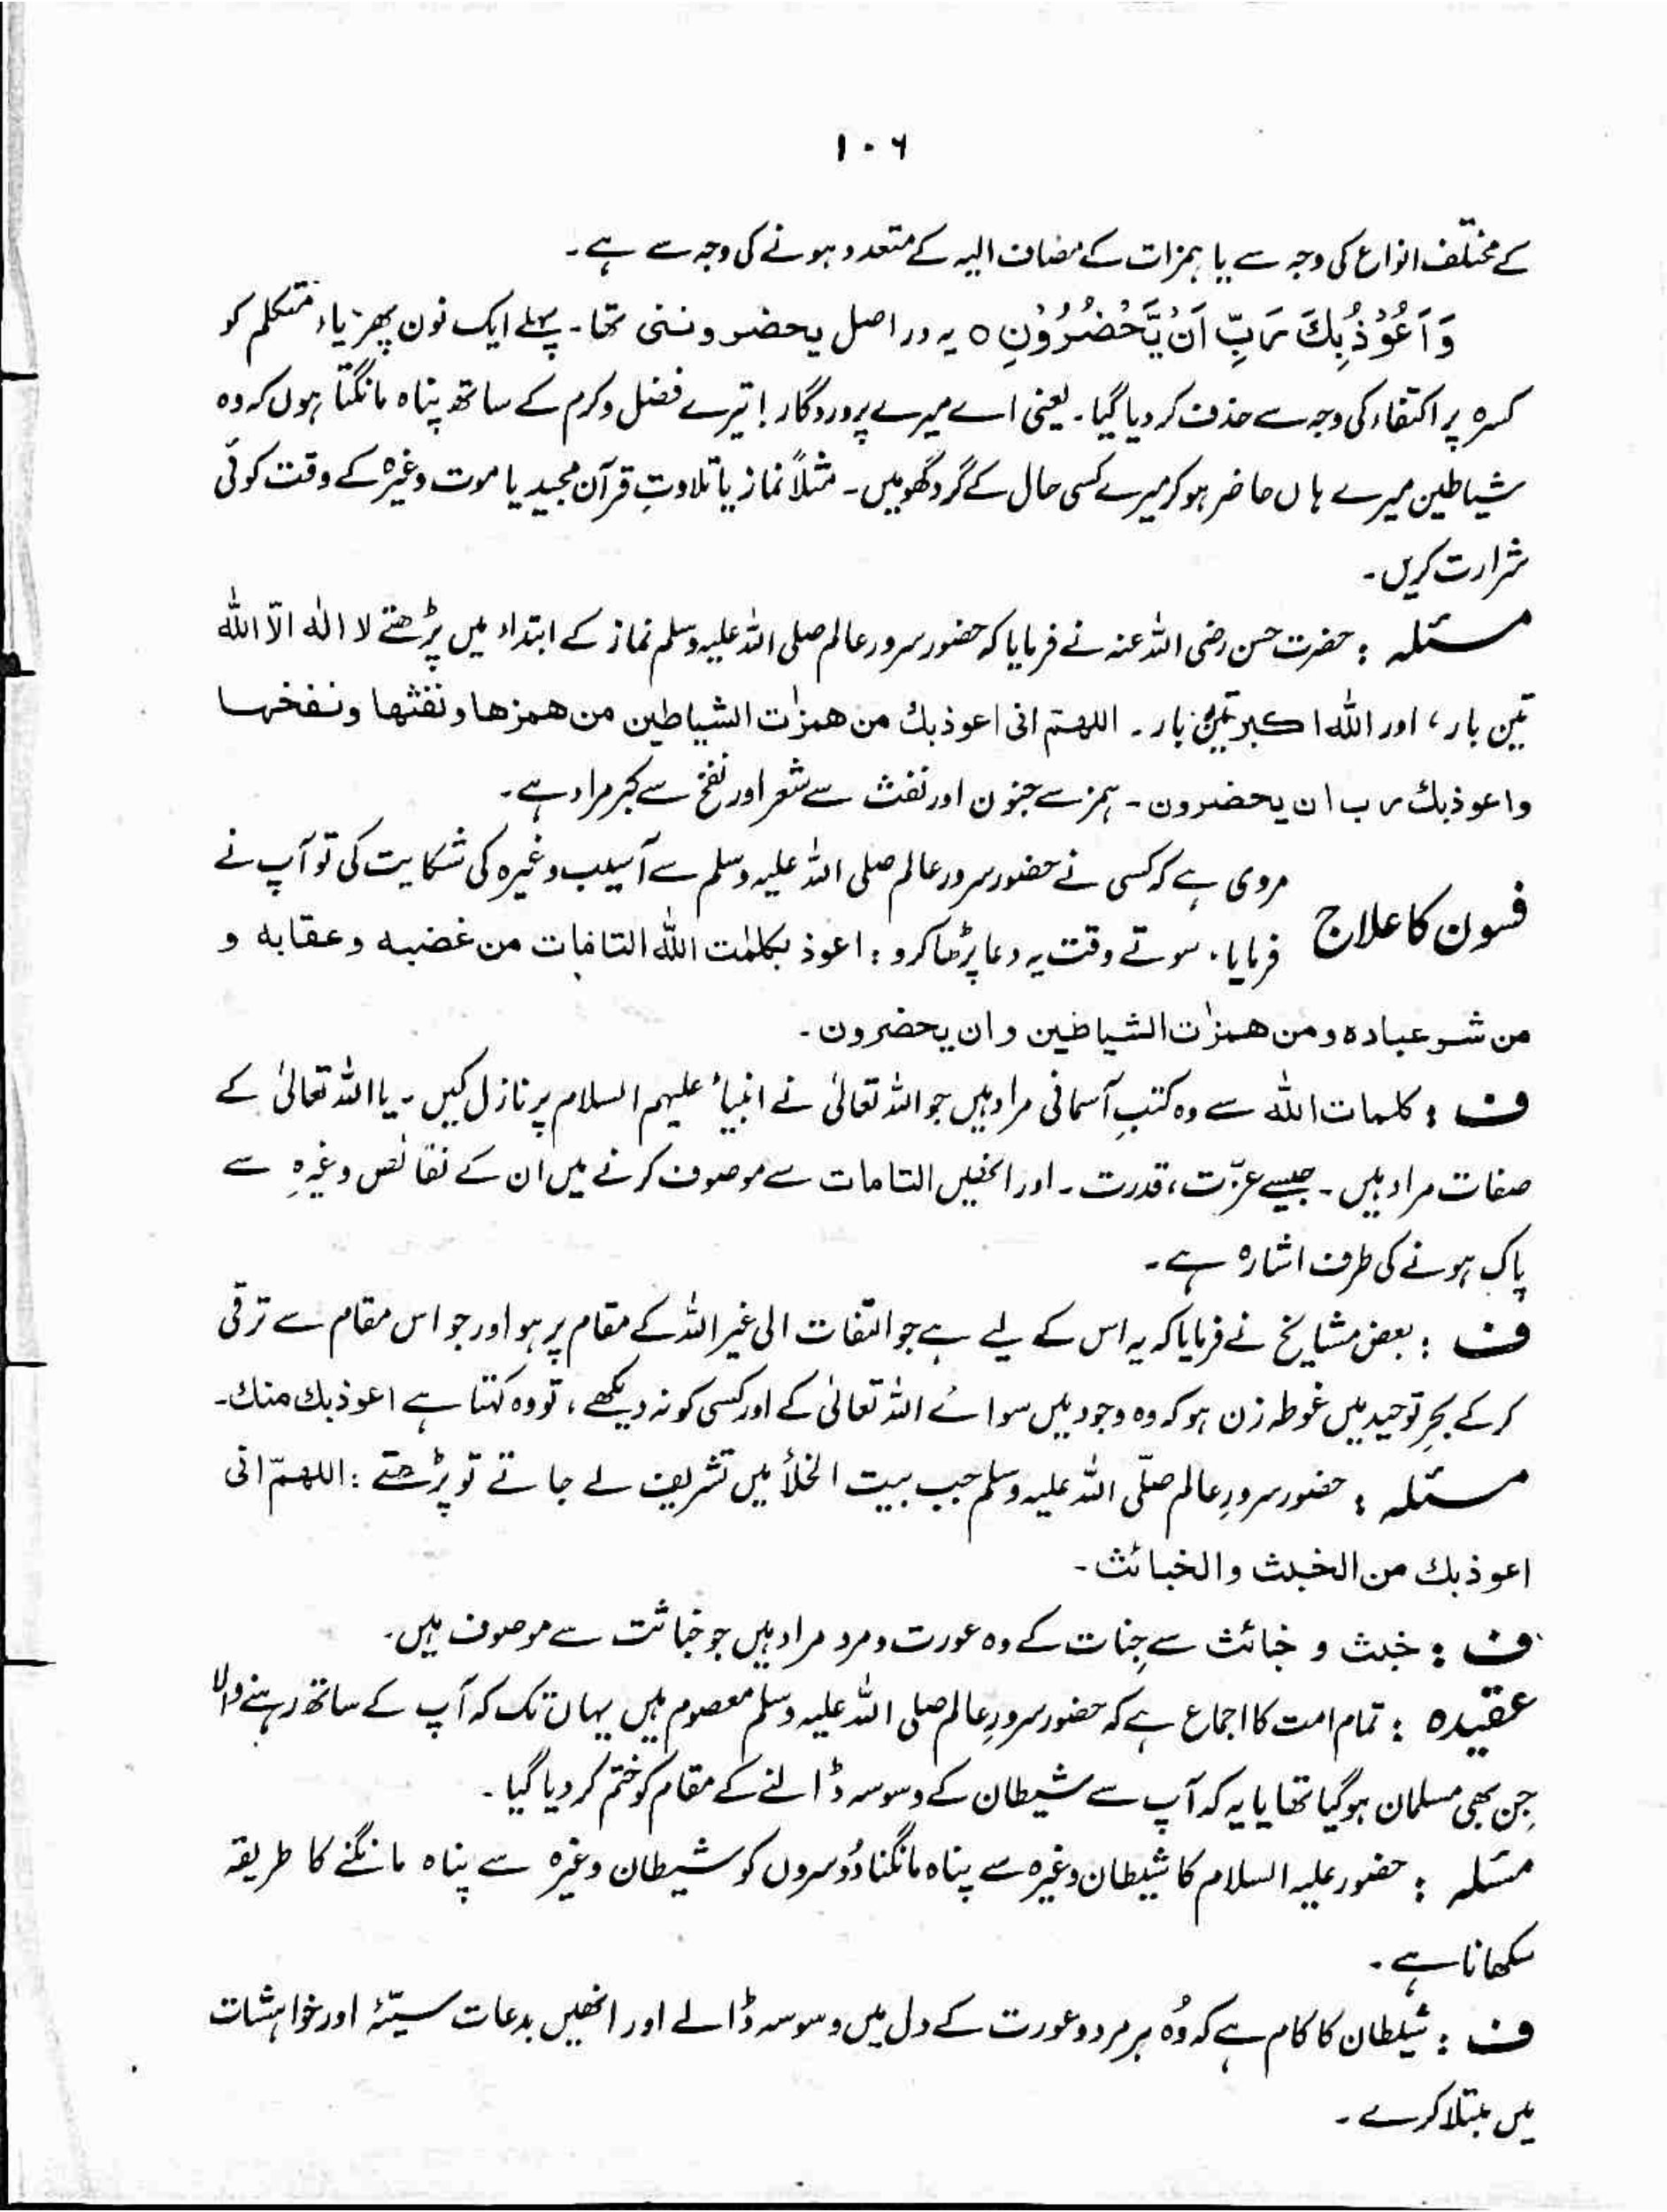 ۱۰۶
کے مختلف انواع کی وجہ سے یا ہمزات کے مضاف الیہ کے متعدد ہونے کی وجہ سے ہے۔
وَاَعُوْذُ بِكَ رَبِّ اَنْ يَّحْضُرُوْنِ ○ یہ دراصل یحضرونی تھا۔ پہلے ایک نون پھر یاء متکلم کو
کسرہ پر اکتفاء کی وجہ سے حذف کر دیا گیا۔ یعنی اے میرے پروردگار! تیرے فضل وکرم کے ساتھ پناہ مانگتا ہوں کہ وہ
شیاطین میرے ہاں حاضر ہو کر میرے کسی حال کے گرد گھومیں۔ مثلاً نماز یا تلاوتِ قرآن مجید یا موت وغیرہ کے وقت کوئی
شرارت کریں۔
مسئلہ : حضرت حسن رضی اللہ عنہ نے فرمایا کہ حضور سرور عالم صلی اللہ علیہ وسلم نماز کے ابتداء میں پڑھتے لا الٰہ الّا اللہ
تین بار، اور اللہ اکبر تین بار۔ اللھم انی اعوذبك من ھمزٰت الشیاطین من ھمزھا ونفثھا ونفخھا
واعوذبك رب ان یحضرون۔ ہمز سے جنون اور نفث سے شعر اور نفخ سے کبر مراد ہے۔
فسون کا علاج مروی ہے کہ کسی نے حضور سرور عالم صلی اللہ علیہ وسلم سے آسیب وغیرہ کی شکایت کی تو آپ نے
فرمایا، سوتے وقت یہ دعا پڑھا کرو : اعوذ بکلمٰت اللہ التامات من غضبہ وعقابہ و
من شر عبادہ ومن ھمزٰت الشیاطین وان یحضرون۔
ف : کلمات اللہ سے وہ کتبِ آسمانی مراد ہیں جو اللہ تعالیٰ نے انبیاء علیہم السلام پر نازل کیں۔ یا اللہ تعالیٰ کے
صفات مراد ہیں۔ جیسے عزّت، قدرت۔ اور انھیں التامات سے موصوف کرنے میں ان کے نقائص وغیرہ سے
پاک ہونے کی طرف اشارہ ہے۔
ف : بعض مشایخ نے فرمایا کہ یہ اس کے لیے ہے جو التفات الی غیر اللہ کے مقام پر ہو اور جو اس مقام سے ترقی
کر کے بحرِ توحید میں غوطہ زن ہو کہ وہ وجود میں سوائے اللہ تعالیٰ کے اور کسی کو نہ دیکھے، تو وہ کہتا ہے اعوذبك منك۔
مسئلہ : حضور سرورِ عالم صلّی اللہ علیہ وسلم جب بیت الخلأ میں تشریف لے جاتے تو پڑھتے : اللھمّ انی
اعوذبك من الخبث والخبائث۔
ف : خبث و خبائث سے جِنات کے وہ عورت و مرد مراد ہیں جو خباثت سے موصوف ہیں۔
عقیدہ : تمام امت کا اجماع ہے کہ حضور سرورِ عالم صلی اللہ علیہ وسلم معصوم ہیں یہاں تک کہ آپ کے ساتھ رہنے والا
جِن بھی مسلمان ہو گیا تھا یا یہ کہ آپ سے شیطان کے وسوسہ ڈالنے کے مقام کو ختم کر دیا گیا۔
مسئلہ : حضور علیہ السلام کا شیطان وغیرہ سے پناہ مانگنا دُوسروں کو شیطان وغیرہ سے پناہ مانگنے کا طریقہ
سکھانا ہے۔
ف : شیطان کا کام ہے کہ وُہ ہر مرد و عورت کے دل میں وسوسہ ڈالے اور انھیں بدعات سیّئہ اور خواہشات
میں مبتلا کرے۔